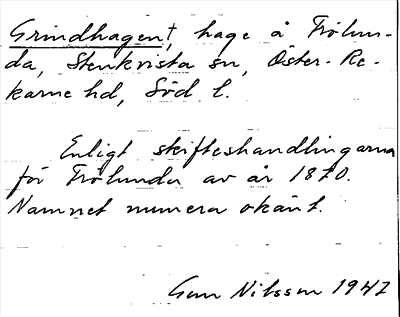 Grindhagen†, hage å Frölun-
da, Stenkvista sn, Öster-Re-
karne hd, Söd l.
Enligt skifteshandlingarna
för Frölunda av år 1870.
Namnet numera okänt.
Gun Nilsson 1947